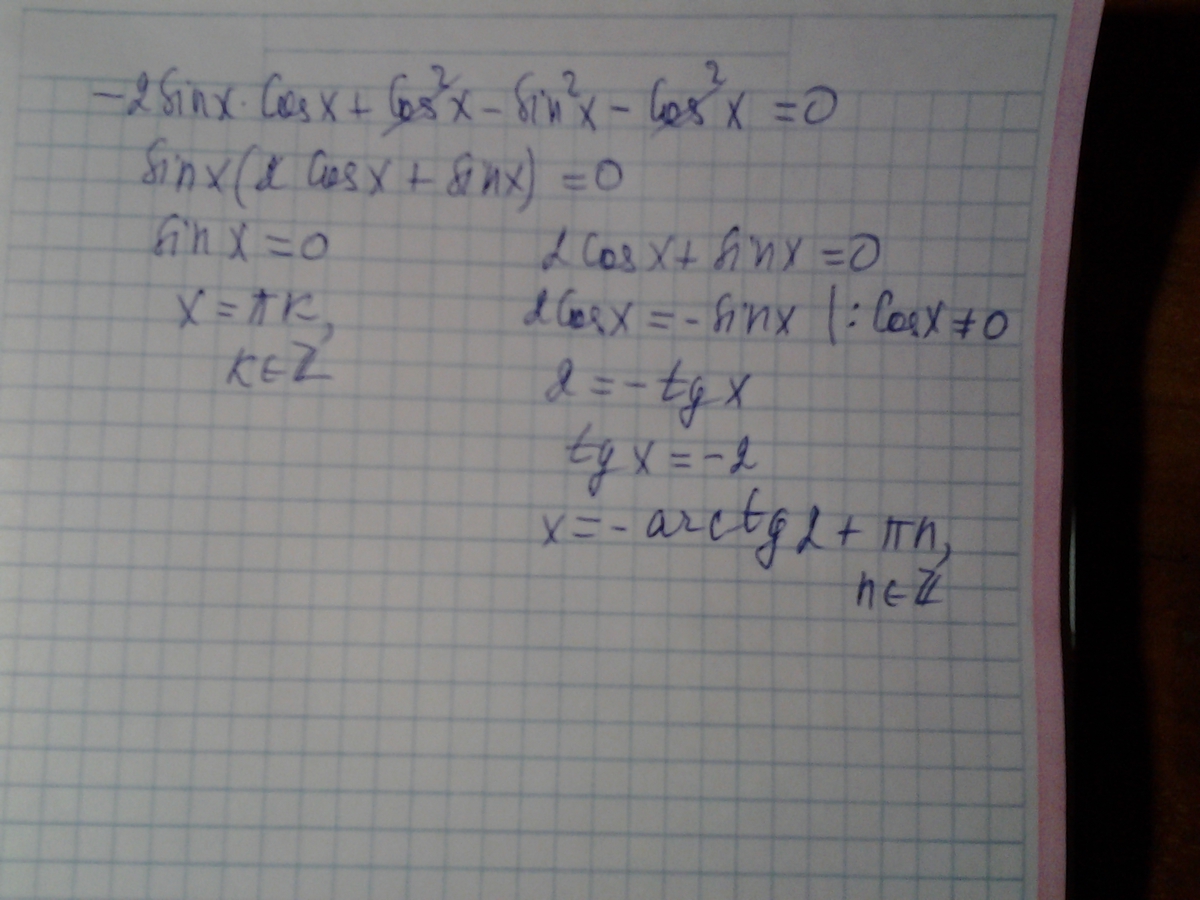 -2sinx·cosx+cos²x-sin²x-cos²x=0
sinx(2cosx+sinx)=0
sinx=0
x=πк,
к∈Z
2cosx+sinx=0
2cosx=-sinx |:cosx≠0
2=-tgx
tgx=-2
x=-arctg2+πn,
n∈Z